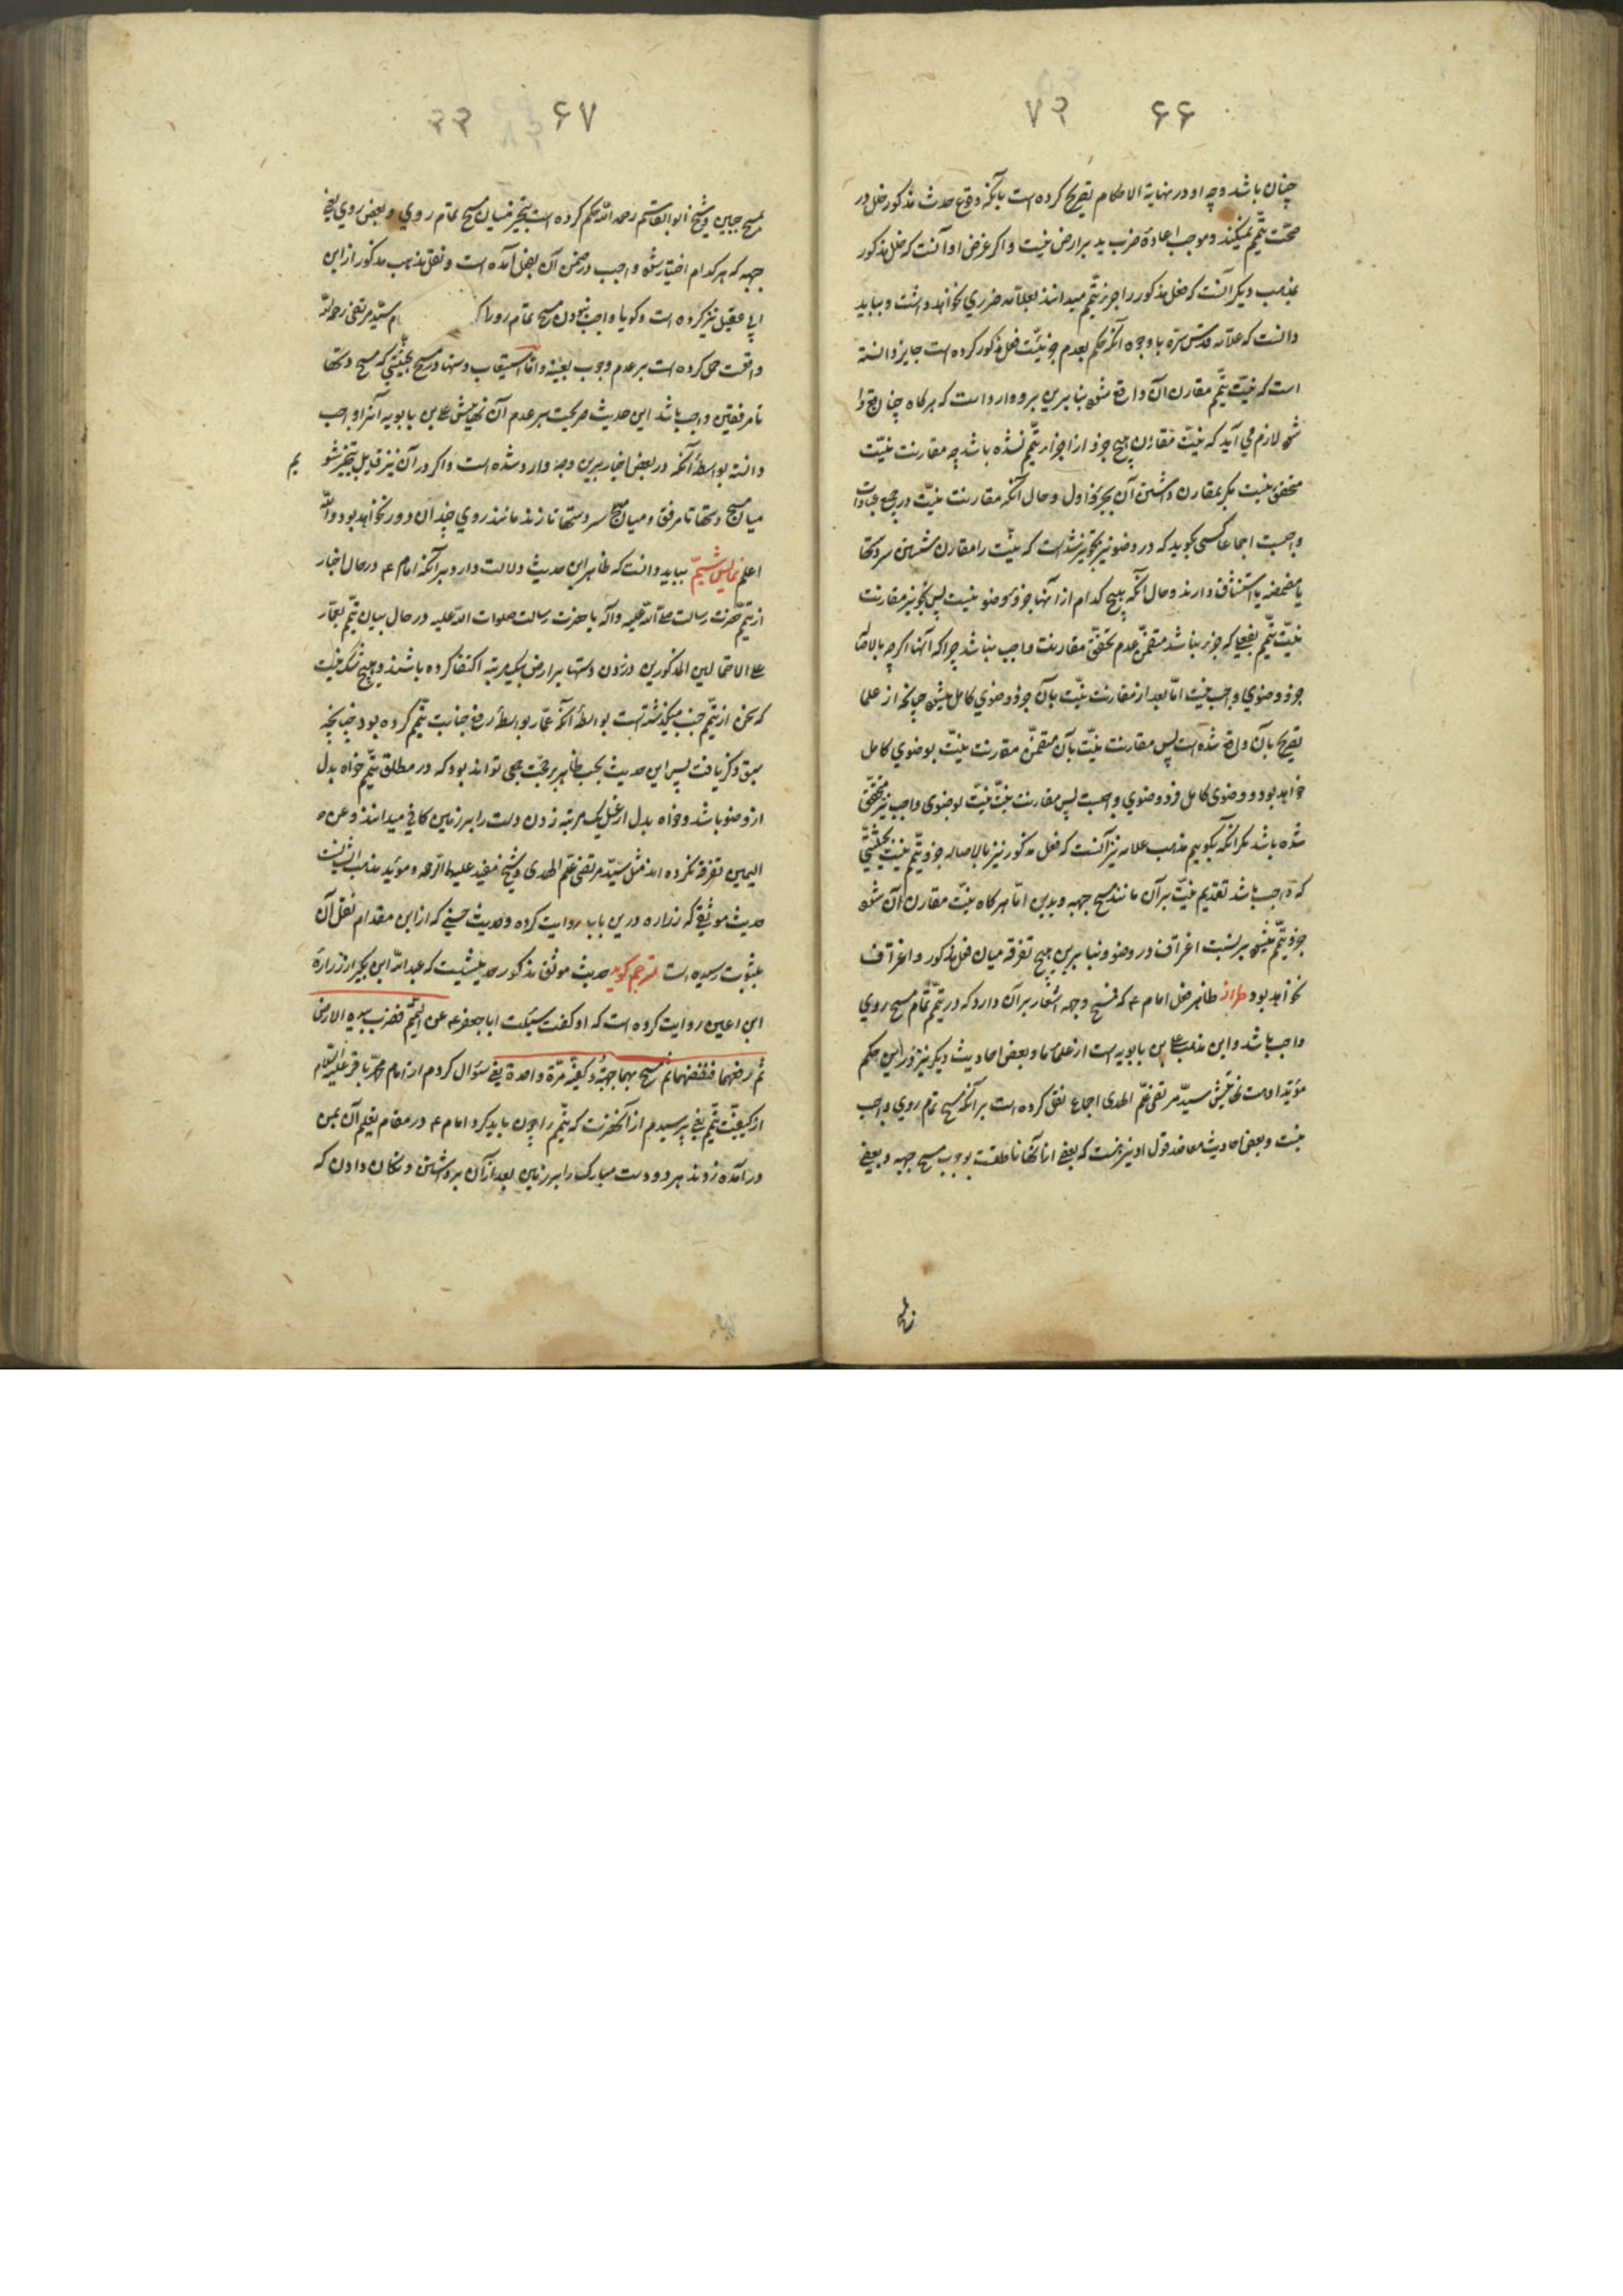 ۶۶ ۷۲
چنان باشد وچه او در نهایة الاحکام تصریح کرده است بآنکه وقوع حدث مذکور خلل در
صحّت تیمّم نمیکند وموجب اعادهٔ ضرب ید برارض نیست واکر غرض او آنست که خلل مذکور
بمذهب دیکر آنست که فعل مذکور را جزء تیمّم میدانند بعلّامه ضرری نخواهد داشت وبباید
دانست که علّامه قدّس سرّه باوجود آنکه حکم بعدم جزئیّت فعل مذکور کرده است جایز دانسته
است که نیّت تیمّم مقارن آن واقع شود بنابرین برو وارد است که هرکاه چنان واقع
شود لازم می آید که نیّت مقارن هیچ جزو از اجزاء تیمّم نشده باشد چه مقارنت نیّت
متحقق نیست مکر بمقارن داشتن آن بجزو اول وحال آنکه مقارنت نیّت در جمیع عبادات
واجبست اجماعا کسی نکوید که در وضو نیز تجویز شده است که نیّت را مقارن شستن سر دستها
یا مضمضه یا استنشاق دارند وحال آنکه هیچ کدام از آنها جزو وضو نیست پس تجویز مقارنت
نیّت تیمّم بفعلی که جزء نباشد متضمّن عدم تحقّق مقارنت واجب نباشد چرا که آنها اکرچه بالاصاله
جزو وضوی واجب نیست امّا بعد از مقارنت نیّت بآن جزو وضوی کامل میشود چنانچه از علما
تصریح بآن واقع شده است پس مقارنت نیّت بآن متضمّن مقارنت نیّت بوضوی کامل
خواهد بود ووضوی کامل فرد وضوی واجبست پس مقارنت نیّت بوضوی واجب نیز متحقّق
شده باشد مکر آنکه بکوییم مذهب علامه نیز آنست که فعل مذکور نیز بالاصاله جزو تیمّم نیست بحیثیّتی
که واجب باشد تقدیم نیّت برآن مانند مسح جبهه ویدین امّا هرکاه نیّت مقارن آن شود
جزو تیمّم میشود بر نسبت اغتراف در وضو وبنابرین هیچ تفرقه میان فعل مذکور واغتراف
نخواهد بود طراز ظاهر فعل امام ع که فمسح وجهه اشعار برآن دارد که در تیمّم تمام مسح روی
واجب باشد واین مذهب علی بن بابویه است از علمای ما وبعض احادیث دیکر نیز در این حکم
مؤیّد اوست نهایتش سیّد مرتضی علم الهدی اجماع نقل کرده است برآنکه مسح تمام روی واجب
نیست وبعض احادیث معاضد قول او نیز هست که بعضی از آنها ناطقست بوجوب مسح جبهه وبعضی
۶۷ ۲۲
بمسح جبین وشیخ ابوالقاسم رحمه اللّه حکم کرده است بتخییر میان مسح تمام روی وبعض روی یعنی
جبهه که هر کدام اختیار شود واجب در ضمن آن بفعل آمده است ونقل مذهب مذکور از ابن
ابی عقیل نیز کرده است وکویا واجب نبودن مسح تمام رو را که سیّد مرتضی رحمه اللّه
واقعست حمل کرده است بر عدم وجوب بعینه وامّا استیعاب دستها در مسح بحیثیّتی که مسح دستها
تا مرفقین واجب باشد این حدیث صریحست بر عدم آن نهایتش علی بن بابویه آنرا واجب
دانسته بواسطهٔ آنکه در بعض اخبار برین وجه وارد شده است واکر در آن نیز قایل بتخییر شویم
میان مسح دستها تا مرفق ومیان مسح سر دستها تا زند مانند روی چندان دور نخواهد بود واللّه
اعلم نمایش ششم بباید دانست که ظاهر این حدیث دلالت دارد برآنکه امام ع در حال اخبار
از تیمّم حضرت رسالت صلی اللّه علیه وآله یا حضرت رسالت صلوات اللّه علیه در حال بیان تیمّم بعمّار
علی الاحتمالین المذکورین در زدن دستها برارض بیکمرتبه اکتفا کرده باشند وهیچ شک نیست
که سخن از تیمّم جنب میکذشته است بواسطهٔ آنکه عمّار بواسطهٔ رفع جنابت تیمّم کرده بود چنانچه
سبق ذکر یافت پس این حدیث بحسب ظاهر حجّت جمعی تواند بود که در مطلق تیمّم خواه بدل
از وضو باشد وخواه بدل از غسل یکمرتبه زدن دست را بر زمین کافی میدانند و
تفرقه نکرده اند مثل سیّد مرتضی علم الهدی وشیخ مفید علیهما الرّحمه ومؤیّد مذهب ایشانست
حدیث موثّقی که زراره درین باب روایت کرده وحدیث حسنی که از ابن مقدام نقل آن
بثبوت رسیده است مترجم کوید حدیث موثق مذکور حدیثیست که عبد اللّه ابن بکیر از زرارهٔ
ابن اعین روایت کرده است که او کفت سئلت ابا جعفر ع عن التیمّم فضرب بیدیه الارض
ثم رفعهما فنفضهما ثم مسح بهما جبهته وکفیه مرّة واحدة یعنی سؤال کردم از امام محمّد باقر علیه السّلام
از کیفیّت تیمّم یعنی پرسیدم از آنحضرت که تیمّم را چون باید کرد امام ع در مقام تعلیم آن بمن
در آمده زدند هر دو دست مبارک را بر زمین بعد از آن برداشتن وتکان دادن که